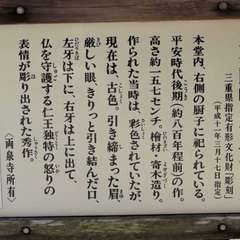 三重県指定有形文化財(彫刻)
(平成十一年三月十七日指定)
本堂内、右側の厨子に祀られている。
平安時代後期(約八百年程前)の作。
高さ約一五七センチ。檜材・寄木造り。
作られた当時は、彩色されていたが、
現在は、古色。引き締まった眉、
厳しい眼、きりっと引き結んだ口、
左牙は下に、右牙は上に出て、
仏を守護する仁王独特の怒りの
表情が彫り出された秀作。
〈両泉寺所有〉